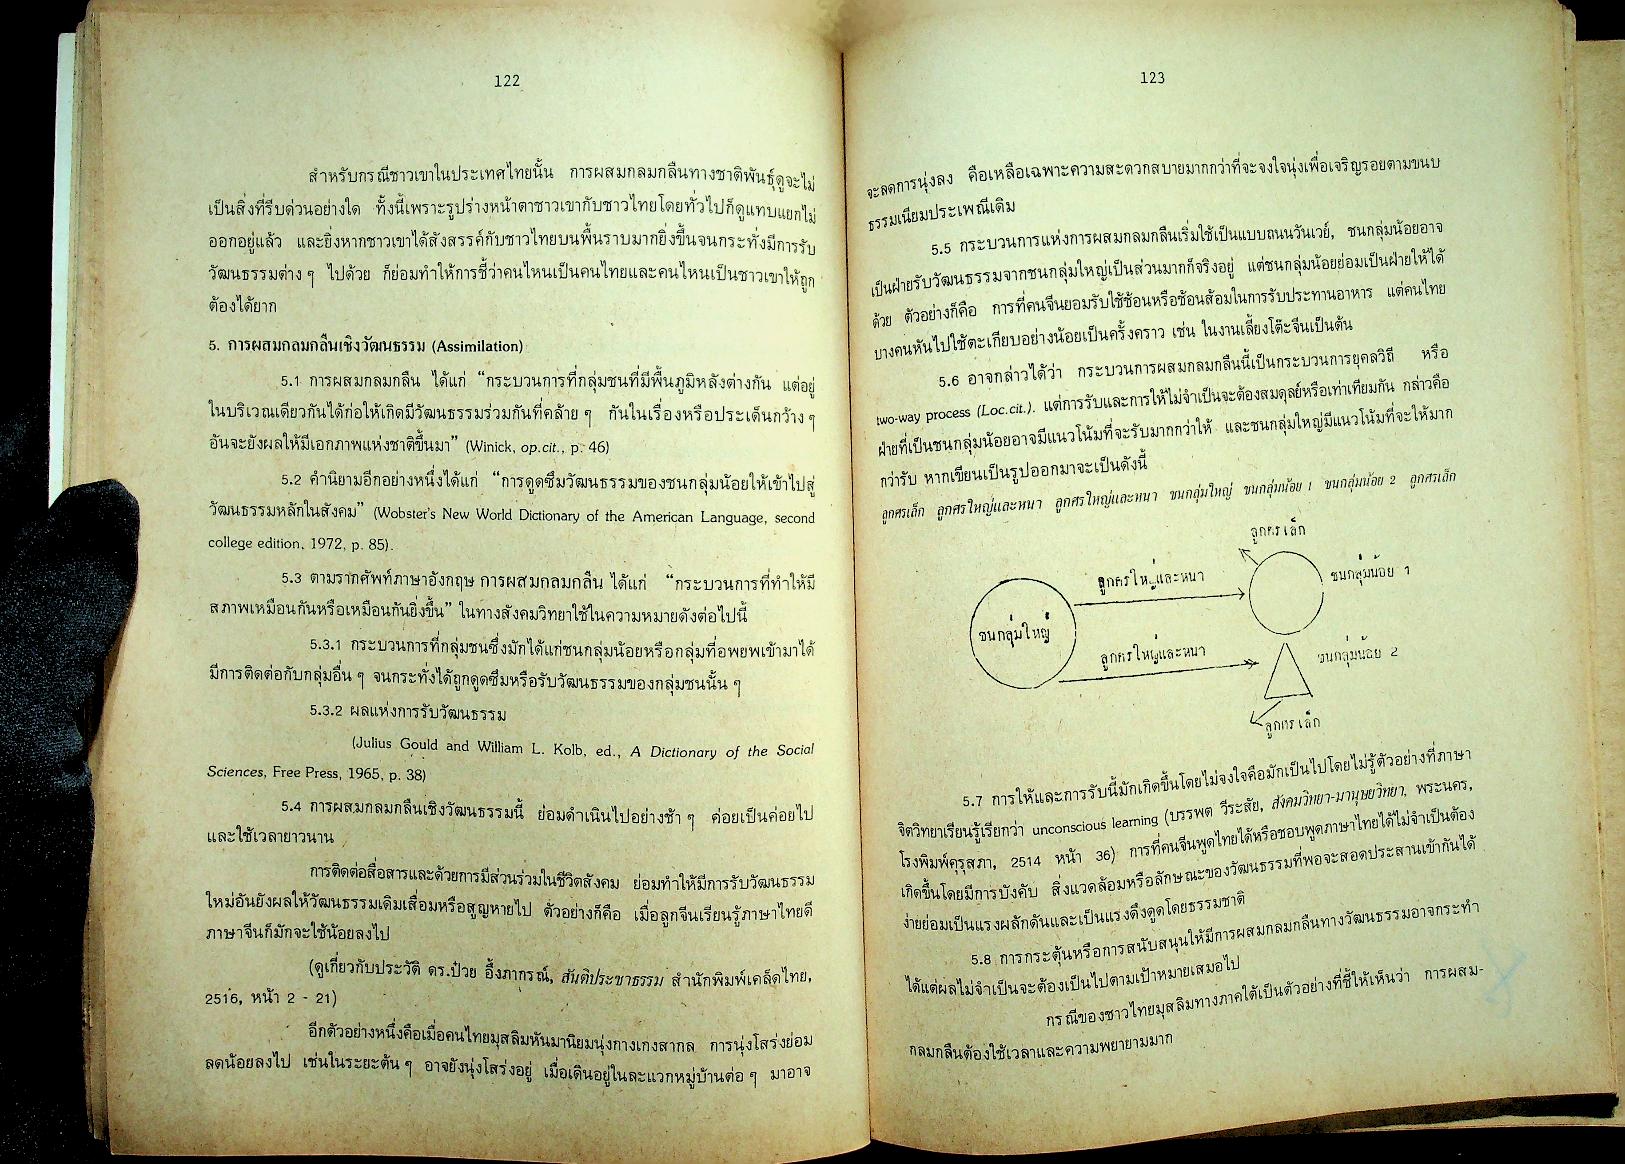 122
สำหรับกรณีชาวเขาในประเทศไทยนั้น การผสมกลมกลืนทางชาติพันธุ์ดูจะไม่
เป็นสิ่งที่รีบด่วนอย่างใด ทั้งนี้เพราะรูปร่างหน้าตาชาวเขากับชาวไทยโดยทั่วไปก็ดูแทบแยกไม่
ออกอยู่แล้ว และยิ่งหากชาวเขาได้สังสรรค์กับชาวไทยบนพื้นราบมากยิ่งขึ้นจนกระทั่งมีการรับ
วัฒนธรรมต่าง ๆ ไปด้วย ก็ย่อมทำให้การชี้ว่าคนไหนเป็นคนไทยและคนไหนเป็นชาวเขาให้ถูก
ต้องได้ยาก
5. การผสมกลมกลืนเชิงวัฒนธรรม (Assimilation)
5.1 การผสมกลมกลืน ได้แก่ “กระบวนการที่กลุ่มชนที่มีพื้นภูมิหลังต่างกัน แต่อยู่
ในบริเวณเดียวกันได้ก่อให้เกิดมีวัฒนธรรมร่วมกันที่คล้าย ๆ กันในเรื่องหรือประเด็นกว้าง ๆ
อันจะยังผลให้มีเอกภาพแห่งชาติขึ้นมา” (Winick, op.cit., p. 46)
5.2 คำนิยามอีกอย่างหนึ่งได้แก่ “การดูดซึมวัฒนธรรมของชนกลุ่มน้อยให้เข้าไปสู่
วัฒนธรรมหลักในสังคม” (Wobster's New World Dictionary of the American Language, second
college edition, 1972, p. 85).
5.3 ตามรากศัพท์ภาษาอังกฤษ การผสมกลมกลืน ได้แก่ “กระบวนการที่ทำให้มี
สภาพเหมือนกันหรือเหมือนกันยิ่งขึ้น” ในทางสังคมวิทยาใช้ในความหมายดังต่อไปนี้
5.3.1 กระบวนการที่กลุ่มชนซึ่งมักได้แก่ชนกลุ่มน้อยหรือกลุ่มที่อพยพเข้ามาได้
มีการติดต่อกับกลุ่มอื่น ๆ จนกระทั่งได้ถูกดูดซึมหรือรับวัฒนธรรมของกลุ่มชนนั้น ๆ
5.3.2 ผลแห่งการรับวัฒนธรรม
(Julius Gould and William L. Kolb, ed., A Dictionary of the Social
Sciences, Free Press, 1965, p. 38)
5.4 การผสมกลมกลืนเชิงวัฒนธรรมนี้ ย่อมดำเนินไปอย่างช้า ๆ ค่อยเป็นค่อยไป
และใช้เวลายาวนาน
การติดต่อสื่อสารและด้วยการมีส่วนร่วมในชีวิตสังคม ย่อมทำให้มีการรับวัฒนธรรม
ใหม่อันยังผลให้วัฒนธรรมเดิมเสื่อมหรือสูญหายไป ตัวอย่างก็คือ เมื่อลูกจีนเรียนรู้ภาษาไทยดี
ภาษาจีนก็มักจะใช้น้อยลงไป
(ดูเกี่ยวกับประวัติ ดร.ป๋วย อึ๊งภากรณ์, สันติประชาธรรม สำนักพิมพ์เคล็ดไทย,
2516, หน้า 2 - 21)
อีกตัวอย่างหนึ่งคือเมื่อคนไทยมุสลิมหันมานิยมนุ่งกางเกงสากล การนุ่งโสร่งย่อม
ลดน้อยลงไป เช่นในระยะต้น ๆ อาจยังนุ่งโสร่งอยู่ เมื่อเดินอยู่ในละแวกหมู่บ้านต่อ ๆ มาอาจ
123
จะลดการนุ่งลง คือเหลือเฉพาะความสะดวกสบายมากกว่าที่จะจงใจนุ่งเพื่อเจริญรอยตามขนบ
ธรรมเนียมประเพณีเดิม
5.5 กระบวนการแห่งการผสมกลมกลืนเริ่มใช้เป็นแบบถนนวันเวย์, ชนกลุ่มน้อยอาจ
เป็นฝ่ายรับวัฒนธรรมจากชนกลุ่มใหญ่เป็นส่วนมากก็จริงอยู่ แต่ชนกลุ่มน้อยย่อมเป็นฝ่ายให้ได้
ด้วย ตัวอย่างก็คือ การที่คนจีนยอมรับใช้ช้อนหรือช้อนส้อมในการรับประทานอาหาร แต่คนไทย
บางคนหันไปใช้ตะเกียบอย่างน้อยเป็นครั้งคราว เช่น ในงานเลี้ยงโต๊ะจีนเป็นต้น
5.6 อาจกล่าวได้ว่า กระบวนการผสมกลมกลืนนี้เป็นกระบวนการยุคลวิถี หรือ
two-way process (Loc.cit.). แต่การรับและการให้ไม่จำเป็นจะต้องสมดุลย์หรือเท่าเทียมกัน กล่าวคือ
ฝ่ายที่เป็นชนกลุ่มน้อยอาจมีแนวโน้มที่จะรับมากกว่าให้ และชนกลุ่มใหญ่มีแนวโน้มที่จะให้มาก
กว่ารับ หากเขียนเป็นรูปออกมาจะเป็นดังนี้
ลูกศรเล็ก ลูกศรใหญ่และหนา ลูกศรใหญ่และหนา ชนกลุ่มใหญ่ ชนกลุ่มน้อย 1 ชนกลุ่มน้อย 2 ลูกศรเล็ก
ลูกศรเล็ก
ลูกศรใหญ่และหนา
ชนกลุ่มน้อย 1
ชนกลุ่มใหญ่
ลูกศรใหญ่และหนา
ชนกลุ่มน้อย 2
ลูกศรเล็ก
5.7 การให้และการรับนี้มักเกิดขึ้นโดยไม่จงใจคือมักเป็นไปโดยไม่รู้ตัวอย่างที่ภาษา
จิตวิทยาเรียนรู้เรียกว่า unconscious learning (บรรพต วีระสัย, สังคมวิทยา-มานุษยวิทยา, พระนคร,
โรงพิมพ์คุรุสภา, 2514 หน้า 36) การที่คนจีนพูดไทยได้หรือชอบพูดภาษาไทยได้ไม่จำเป็นต้อง
เกิดขึ้นโดยมีการบังคับ สิ่งแวดล้อมหรือลักษณะของวัฒนธรรมที่พอจะสอดประสานเข้ากันได้
ง่ายย่อมเป็นแรงผลักดันและเป็นแรงดึงดูดโดยธรรมชาติ
5.8 การกระตุ้นหรือการสนับสนุนให้มีการผสมกลมกลืนทางวัฒนธรรมอาจกระทำ
ได้แต่ผลไม่จำเป็นจะต้องเป็นไปตามเป้าหมายเสมอไป
กรณีของชาวไทยมุสลิมทางภาคใต้เป็นตัวอย่างที่ชี้ให้เห็นว่า การผสม-
กลมกลืนต้องใช้เวลาและความพยายามมาก